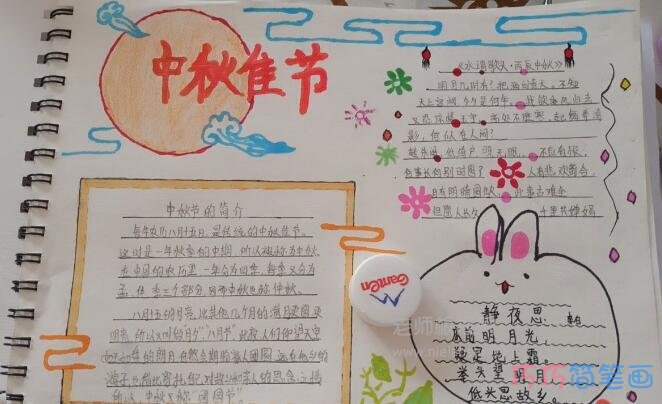 中秋佳节
《水调歌头·丙辰中秋》
明月几时有？把酒问青天。不知
天上宫阙，今夕是何年。我欲乘风归去
又恐琼楼玉宇，高处不胜寒。起舞弄清
影，何似在人间？
转朱阁，低绮户，照无眠。不应有恨，
何事长向别时圆？人有悲欢离合
月有阴晴圆缺，此事古难全
但愿人长久，千里共婵娟
中秋节的简介
每年农历八月十五日，是传统的中秋佳节。
这时是一年秋季的中期，所以被称为中秋。
在中国的农历里，一年分为四季，每季又分为
孟、仲、季三个部分，因而中秋也称仲秋。
八月十五的月亮，比其他几个月的满月更圆，更
明亮，所以又叫
的朗月，自然会期盼家人团圆，远在他乡的
游子，也借此寄托
所以，中秋又称"团圆节"
Ganten
静夜思
李白
床前明月光，
疑是地上霜。
举头望明月，
低头思故乡。
老师板
简笔画